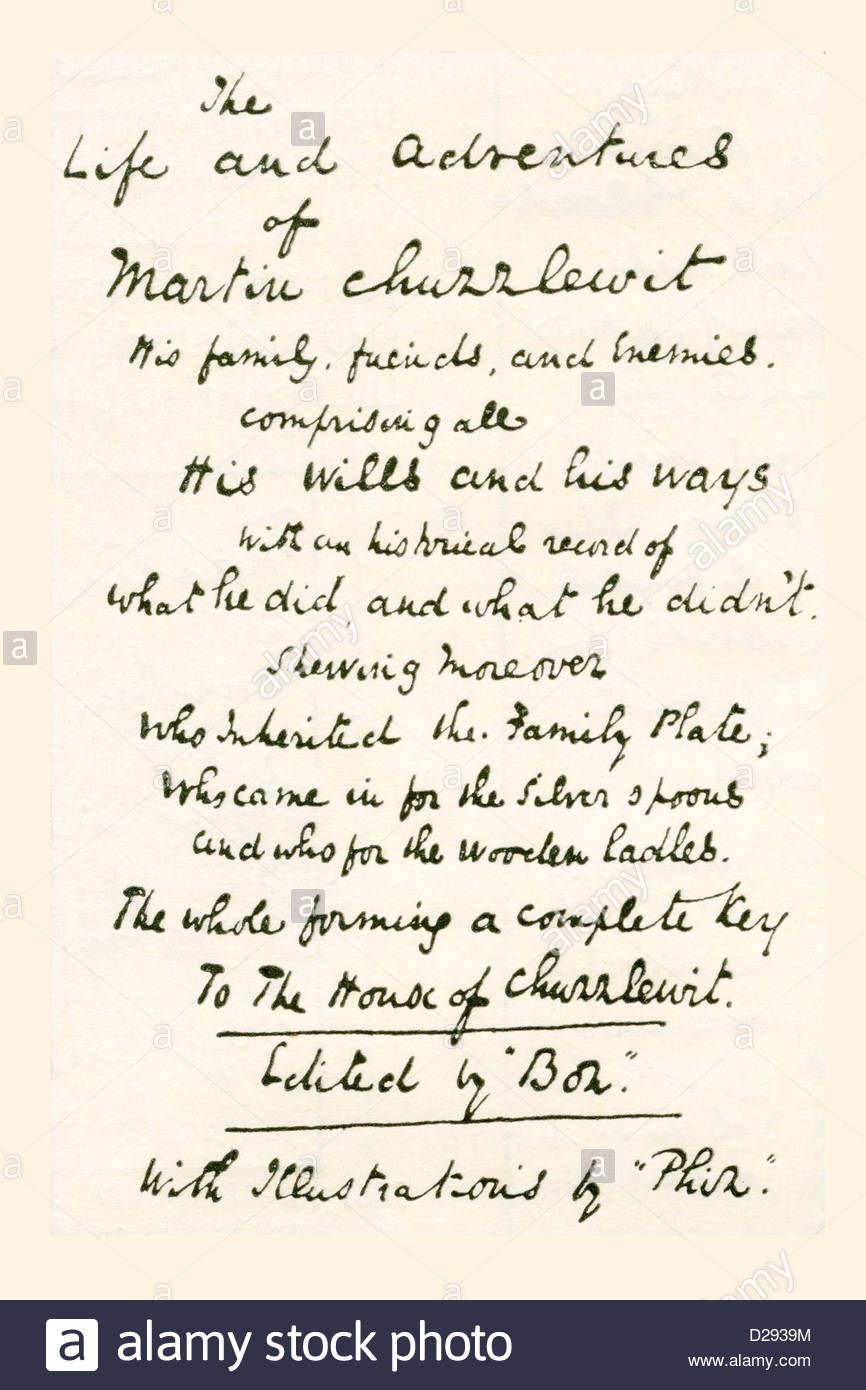 The
Life and Adventures
of
Martin Chuzzlewit
His family, friends, and Enemies.
Comprising all
His Wills and his Ways
With an historical record of
What he did, and what he didn't.
Shewing Moreover
Who Inherited the Family Plate;
Who came in for the Silver spoons
and who for the Wooden Ladles.
The whole forming a complete Key
To The House of Chuzzlewit.
Edited by "Boz."
With Illustrations by "Phiz."
alamy
alamy
alamy
alamy
alamy
alamy
a alamy stock photo
D2939M
www.alamy.com